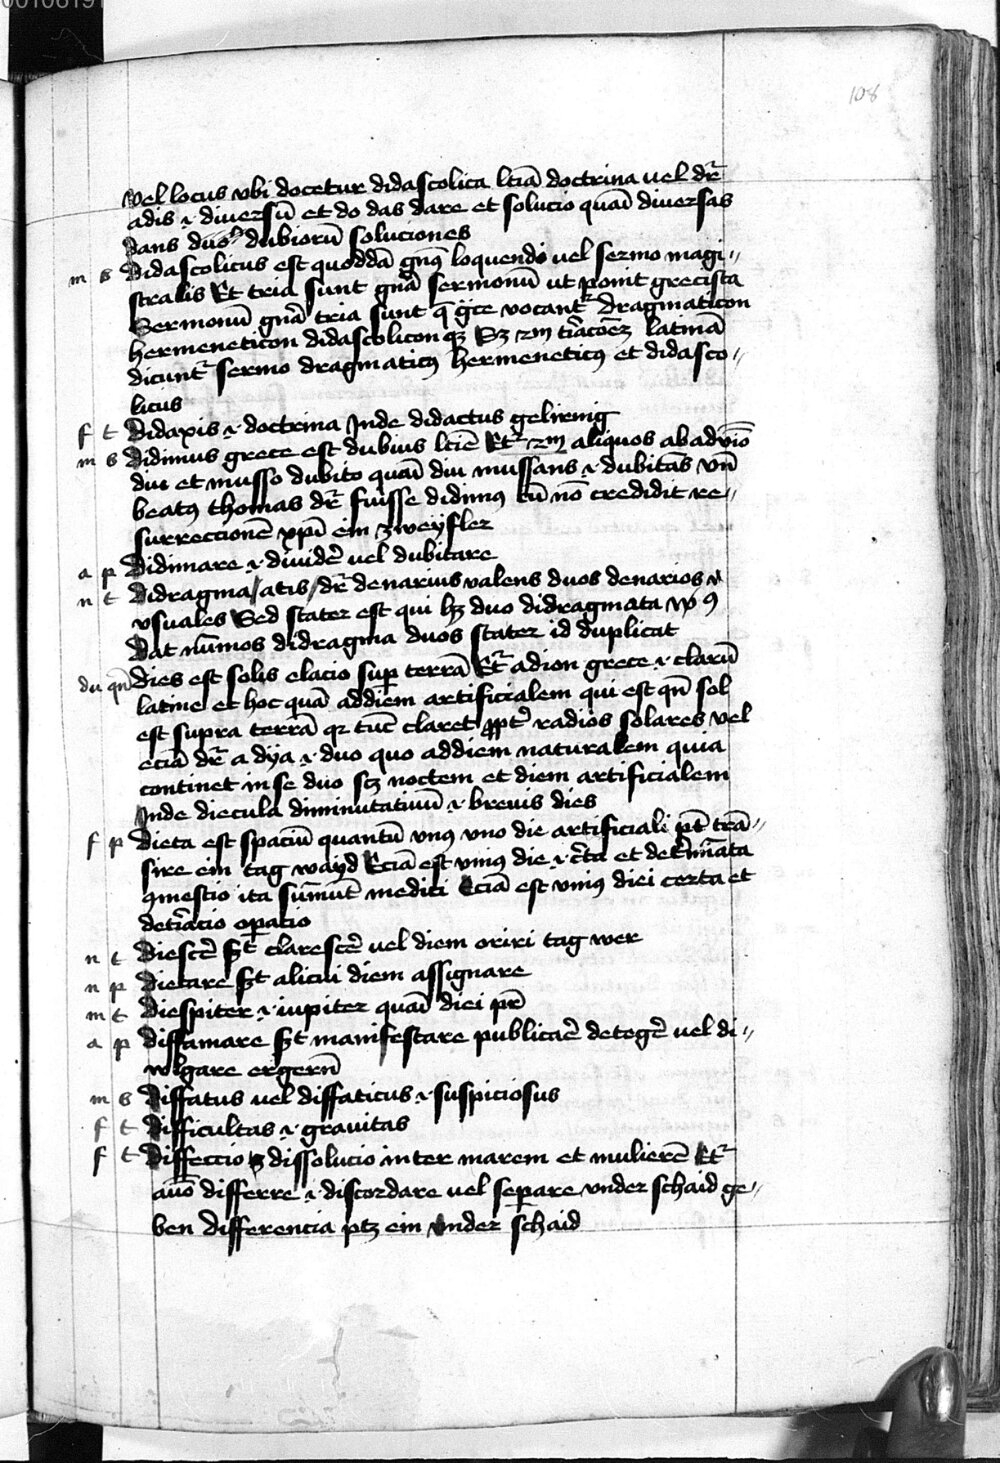 108
vel locus vbi docetur didascolica lc̄iā doctrina vel dr̄
adis .i. diuersū et do das dare et solucio quā diuersas
dans duoꝝ dubiorū soluciones
m s Didascolicus est quoddā gn̄s loquendi vel sermo magi⸗
stralis Et tria sunt gn̄a sermonū ut ponit grecista
Sermonū gn̄a tria sunt q̄ gr̄ce vocant᷑ dragmaticon
hermeneticon didascoliconqꝫ latinā
dicunt᷑ sermo dragmaticꝯ hermeneticꝯ et didasco⸗
licus
f t Didaxis .i. doctrina Inde didactus gelirnig
m s Didimus grece est dubius aliquos ab
diu et musso dubito quā diu mussans .i. dubitās vn̄
beatꝯ thomas dr̄ fuisse didimꝯ cū nō credidit re⸗
surreccionē xp̄i ein zweyfler
a p Didimare .i. diuider̄ vel dubitare
n t Didragma / atis / dr̄ denarius valens duos denarios
vsuales Sed stater est qui hꝫ duo didragmata
Dat nūmos didragma duos stater id duplicat
du qn̄ Dies est solis elacio sup terrā Et᷑ a dion grece .i. clarū
latine et hoc quā ad diem artificialem qui est qn̄ sol
est supra terrā qꝛ tūc claret ꝓpt᷑ radios solares vel
eciā dr̄ a dya .i. duo quo ad diem naturalem quia
continet in se duo scꝫ noctem et diem artificialem
Inde diecula diminutatiuū .i. breuis dies
f p Dieta est spaciū quantū vnꝯ vno die artificiali pt̄ trā⸗
sire ein tag wayd Eciā est vniꝯ die .i. c̄ta et det̄mīata
ꝯmestio ita sūmūt medici Eciā est vniꝯ diei certa et
det̄iacio opacio
n t Diescer̄ st̄ clarescer̄ vel diem oriri tag wer
n p Dietare st̄ alicui diem assignare
m t Diespiter .i. iupiter quā diei pr̄
a p Diffamare st̄ manifestare publicar̄ deteger̄ vel di⸗
wlgare ergern̄
m s Diffatus vel diffaticus .i. suspiciosus
f t Difficultas .i. grauitas
f t Diffeccio dissolucio inter marem et mulierē Et᷑
differre .i. discordare vel separe vnder schaid ge⸗
ben differencia ptꝫ ein vnder schaid